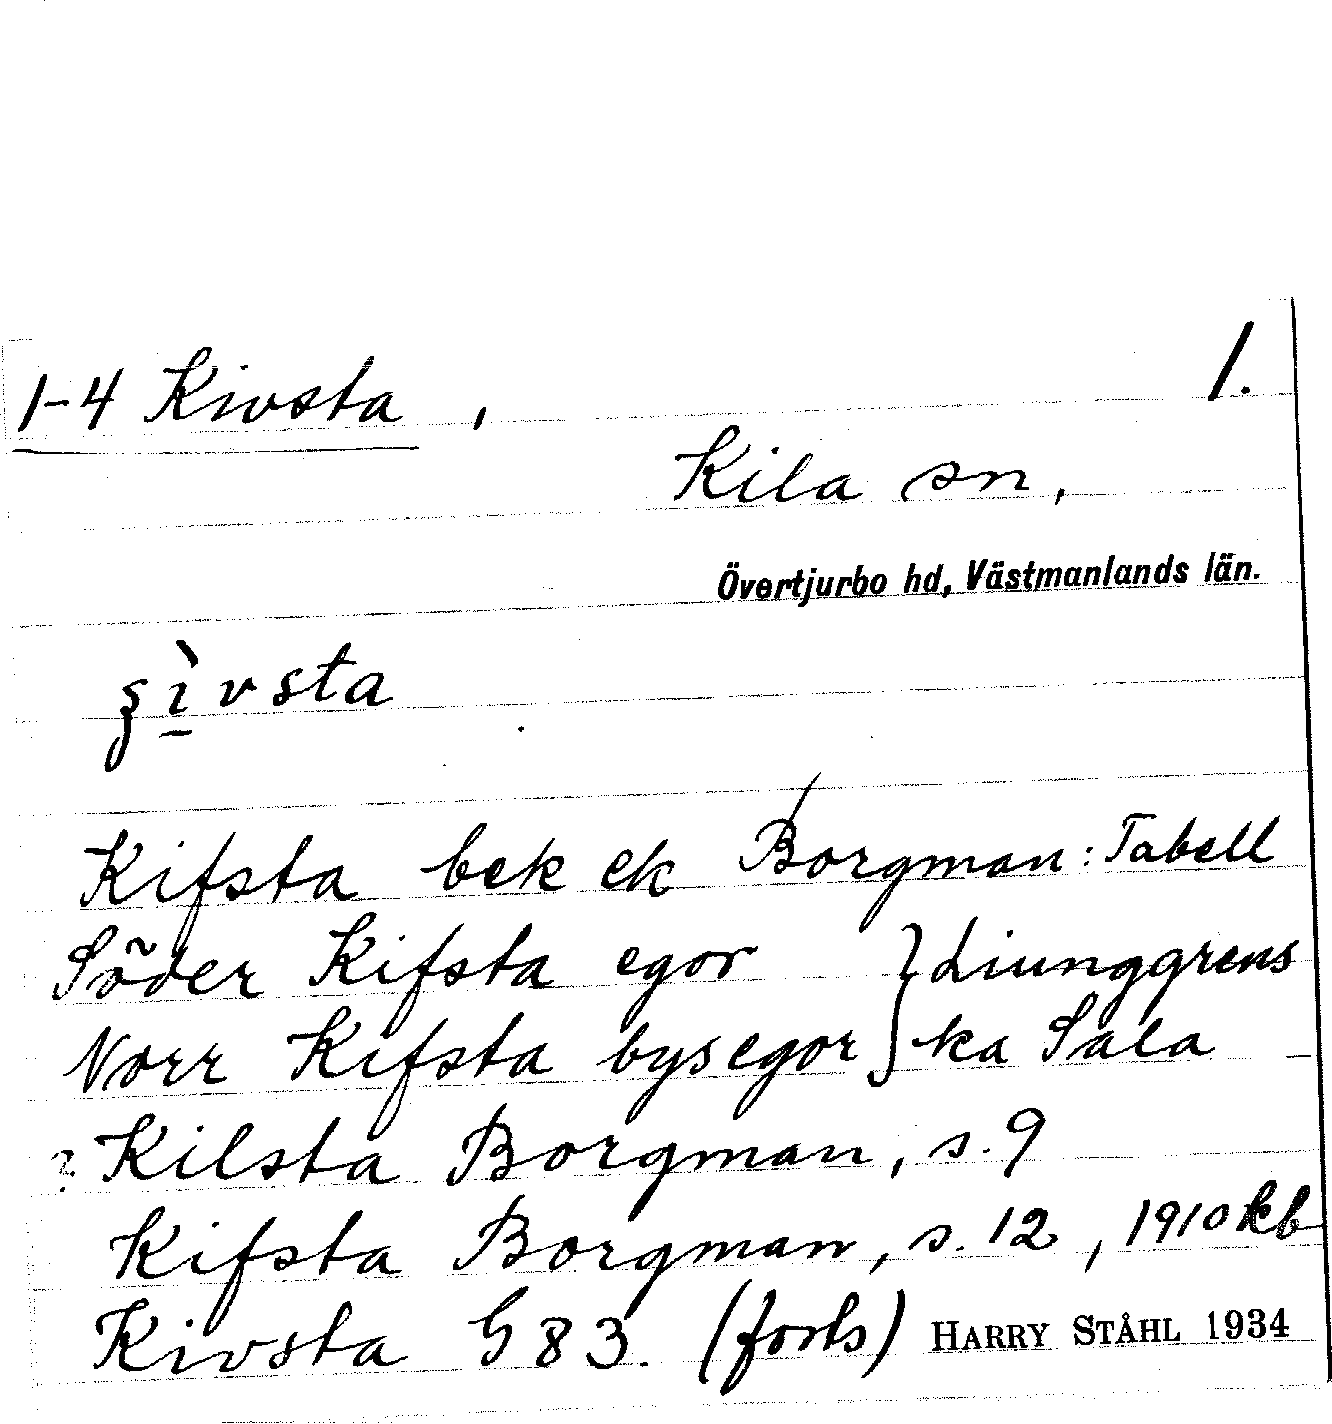 1-4 Kivsta, 1.
Kila sn,
Övertjurbo hd, Västmanlands län.
ʂìvsta
Kifsta bek ek Borgman: Tabell
Söder Kifsta egor } Liunggrens
Norr Kifsta bysegor } ka Sala
? Kilsta Borgman, s. 9
Kifsta Borgman, s. 12, 1910 kb
Kivsta G 83. (forts) HARRY STÅHL 1934